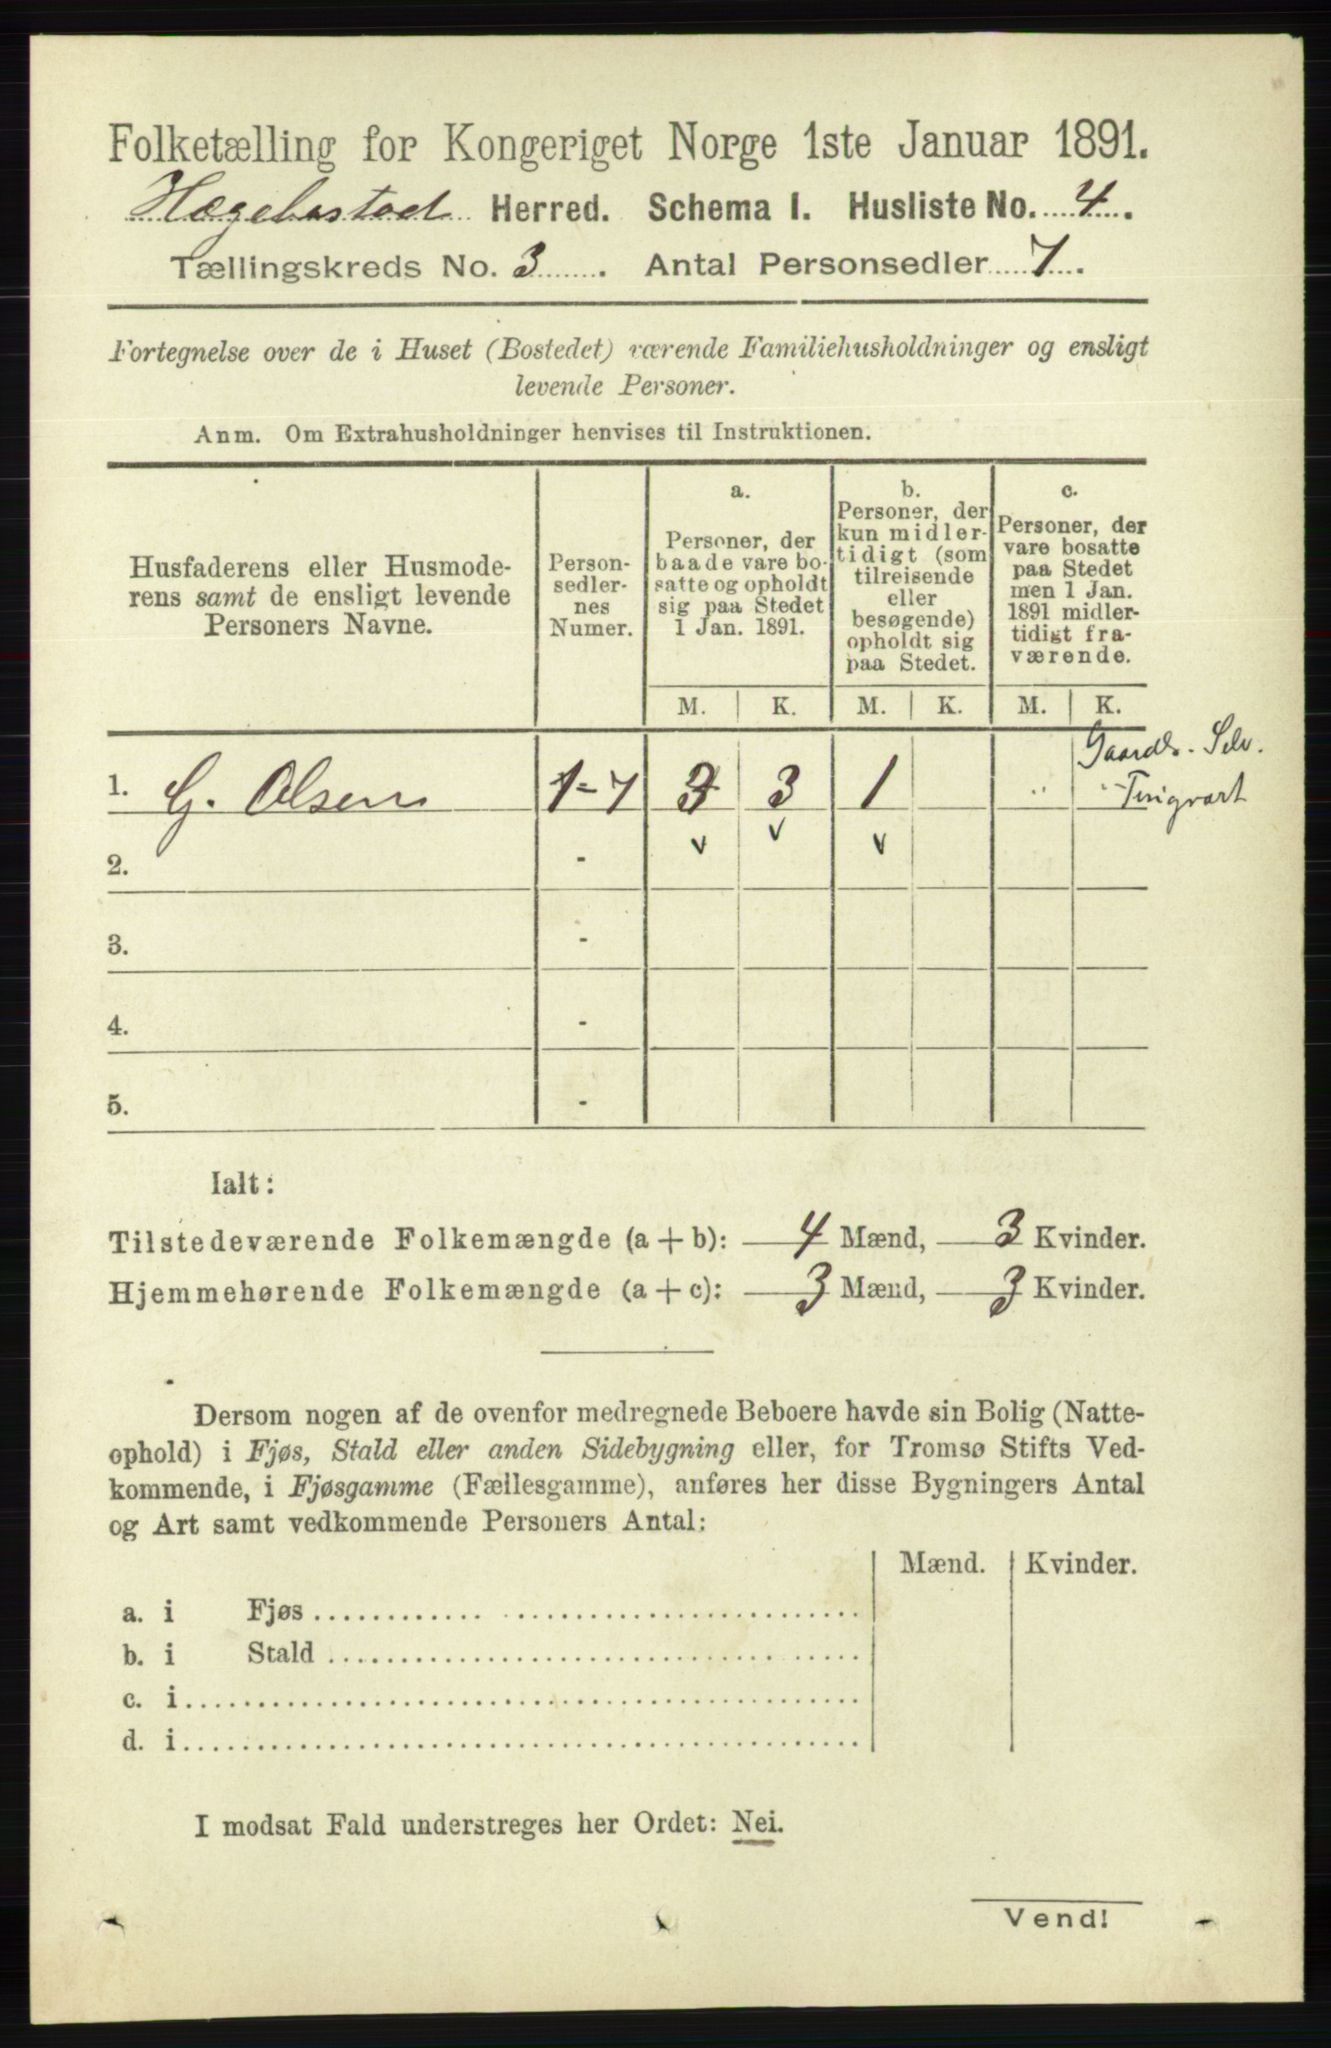 Folketælling for Kongeriget Norge 1ste Januar 1891.
Hægebostad Herred. Schema I. Husliste No. 4.
Tællingskreds No. 3. Antal Personsedler 7.
Fortegnelse over de i Huset (Bostedet) værende Familiehusholdninger og ensligt
levende Personer.
Anm. Om Extrahusholdninger henvises til Instruktionen.
Husfaderens eller Husmode-
rens samt de ensligt levende
Personers Navne.
Person-
sedler-
nes
Numer.
a.
Personer, der
baade vare bo-
satte og opholdt
sig paa Stedet
1 Jan. 1891.
b.
Personer, der
kun midler-
tidigt (som
tilreisende
eller
besøgende)
opholdt sig
paa Stedet.
c.
Personer, der
vare bosatte
paa Stedet
men 1 Jan.
1891 midler-
tidigt fra-
værende.
M. K. M. K. M. K.
1. G. Olsen 1-7 3 3 1
Gaardb. Selv.
2. -
3. -
4. -
5. -
Ialt:
Tilstedeværende Folkemængde (a + b): 4 Mænd, 3 Kvinder.
Hjemmehørende Folkemængde (a + c): 3 Mænd, 3 Kvinder.
Dersom nogen af de ovenfor medregnede Beboere havde sin Bolig (Natte-
ophold) i Fjøs, Stald eller anden Sidebygning eller, for Tromsø Stifts Ved-
kommende, i Fjøsgamme (Fællesgamme), anføres her disse Bygningers Antal
og Art samt vedkommende Personers Antal:
Mænd. Kvinder.
a. i Fjøs
b. i Stald
c. i
d. i
I modsat Fald understreges her Ordet: Nei.
Vend!